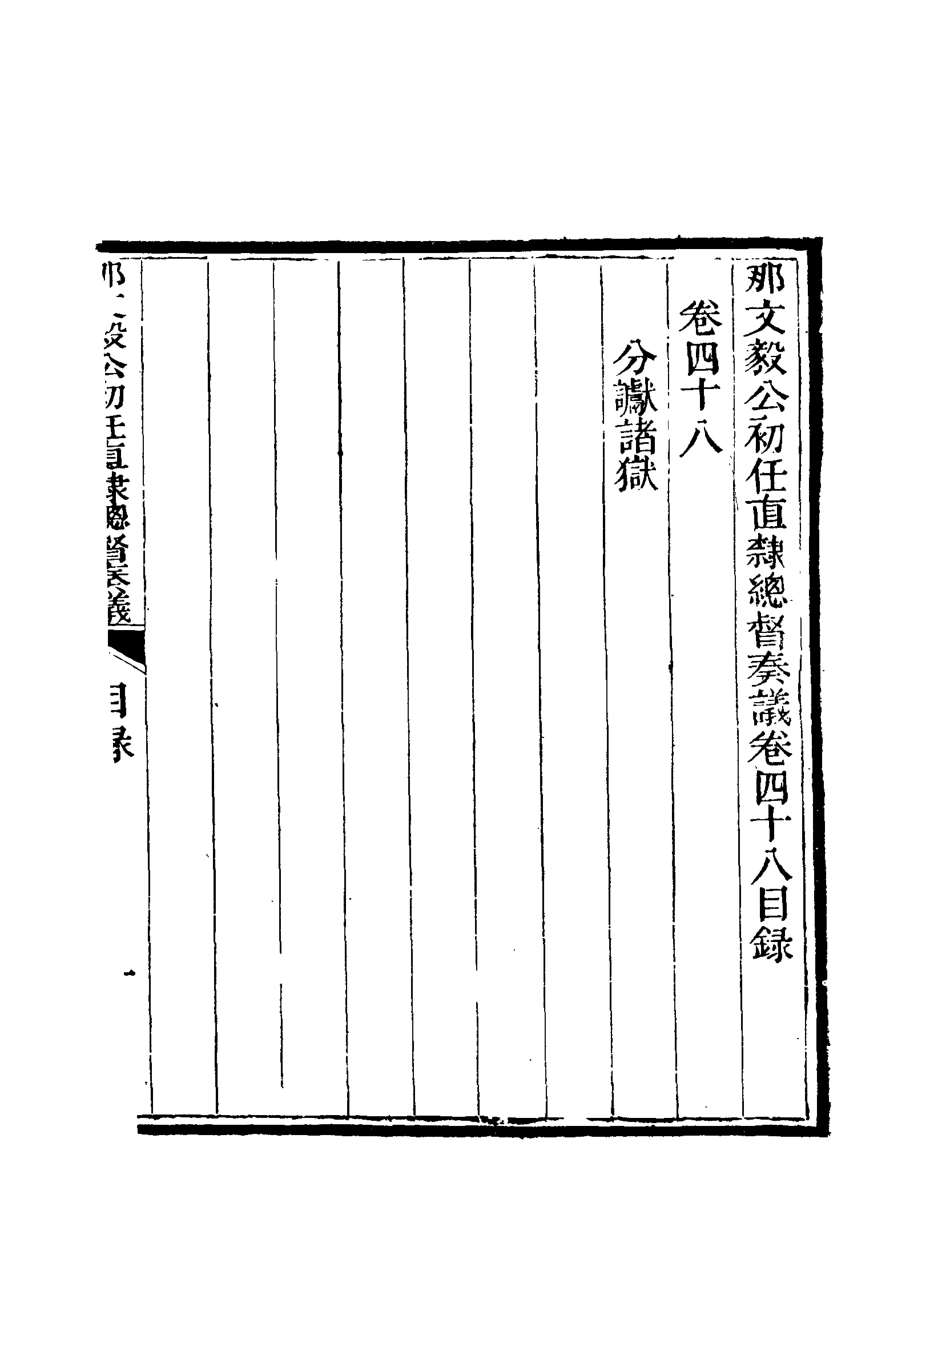 那文毅公初任直隸總督奏議卷四十八目録
卷四十八
分讞諸獄
那文毅公初任直隸總督奏議 目録 一